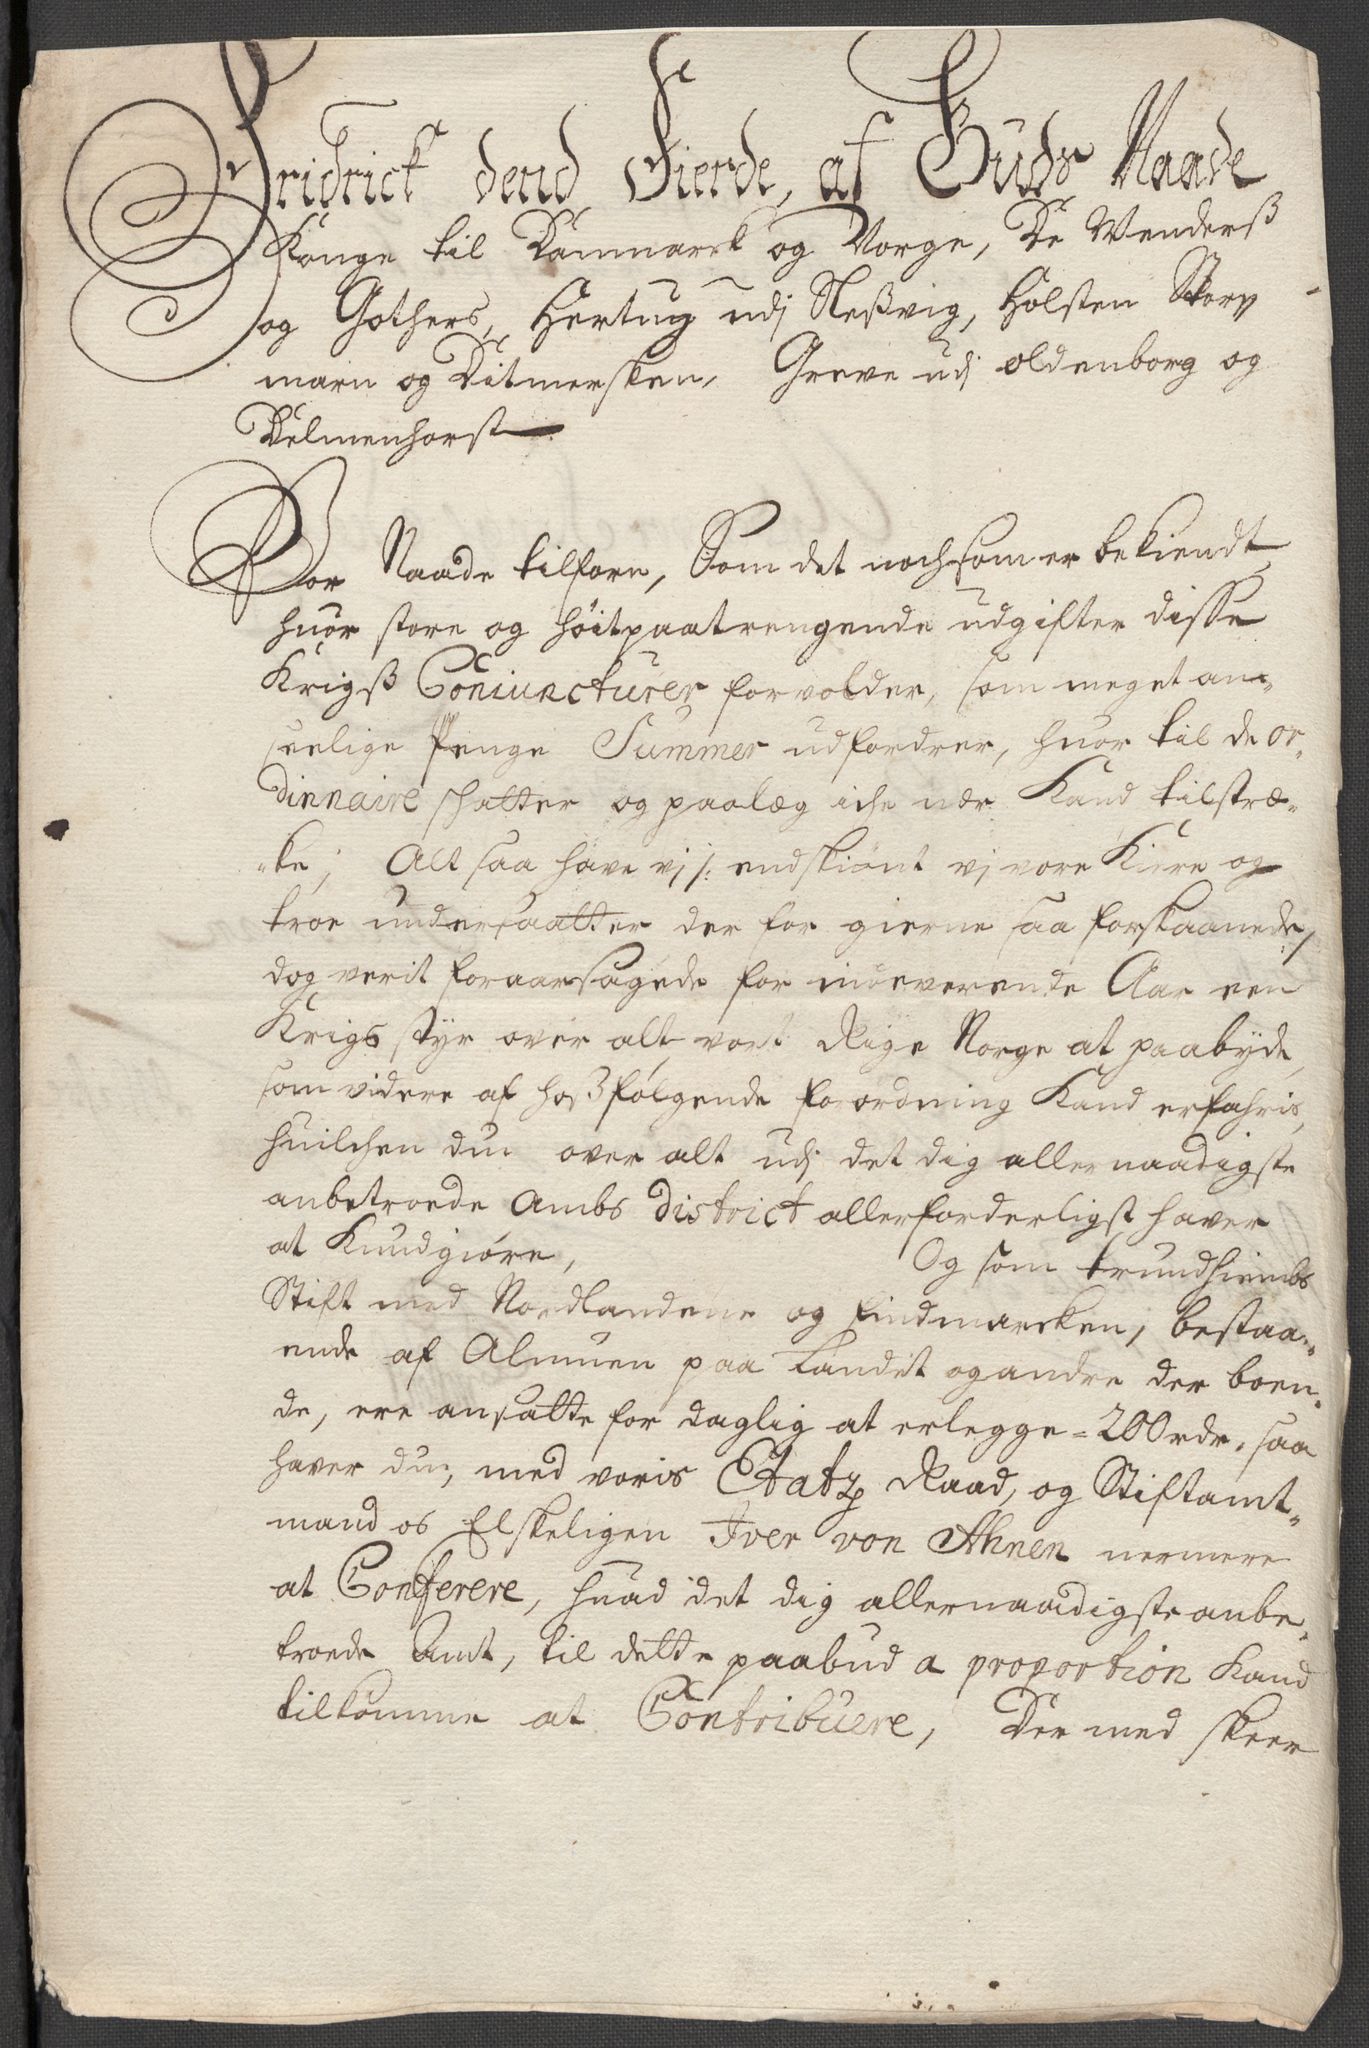 Fridrick dend Fierde, af Guds Naade
Konge til Danmarck og Norge, De Wenderß
og Gothers, Hertug udj Sleßvig, Holsten Stor
marn og Ditmersken, Greve udj oldenborg og
Delmenhorst
Vor Naade tilforn, Som det nochsom er bekiendt
huor store og höitpaatrengende udgifter disse
Krigß Coniuncturer forvolder, som meget an-
seelige Penge Summer udfordrer, huor til de or-
dinnaire schatter og paalæg iche nær Kand tilstræ-
ke; Alt saa have vj /: endskiönt vj vore Kiere og
troe undersaatter der for gierne saa forskaanede/
dog verit foraarsagede for indeverende Aar een
Krigs styr over alt vort Rige Norge at paabyde,
som videre af hosfölgende forordning Kand erfahris,
huilchen du over alt udj det dig allernaadigste
anbetroede Ambs District allerforderligst haver
at Kundgiöre, Og som trundhiembs
Stift med Nordlandene og findmarcken, bestaa-
ende af Almuen paa Landet og andre der boen-
de, ere ansatte for daglig at erlegge = 200 rdr. saa
haver du, med voris Etatz Raad, og Stiftamt-
mand os Elskeligen Iver von Ahnen nermere
at Conferere, huad det dig allernaadigste anbe-
troede Amt, til dette paabud a proportion Kand
tilkomme at Contribuere, Der med skeer